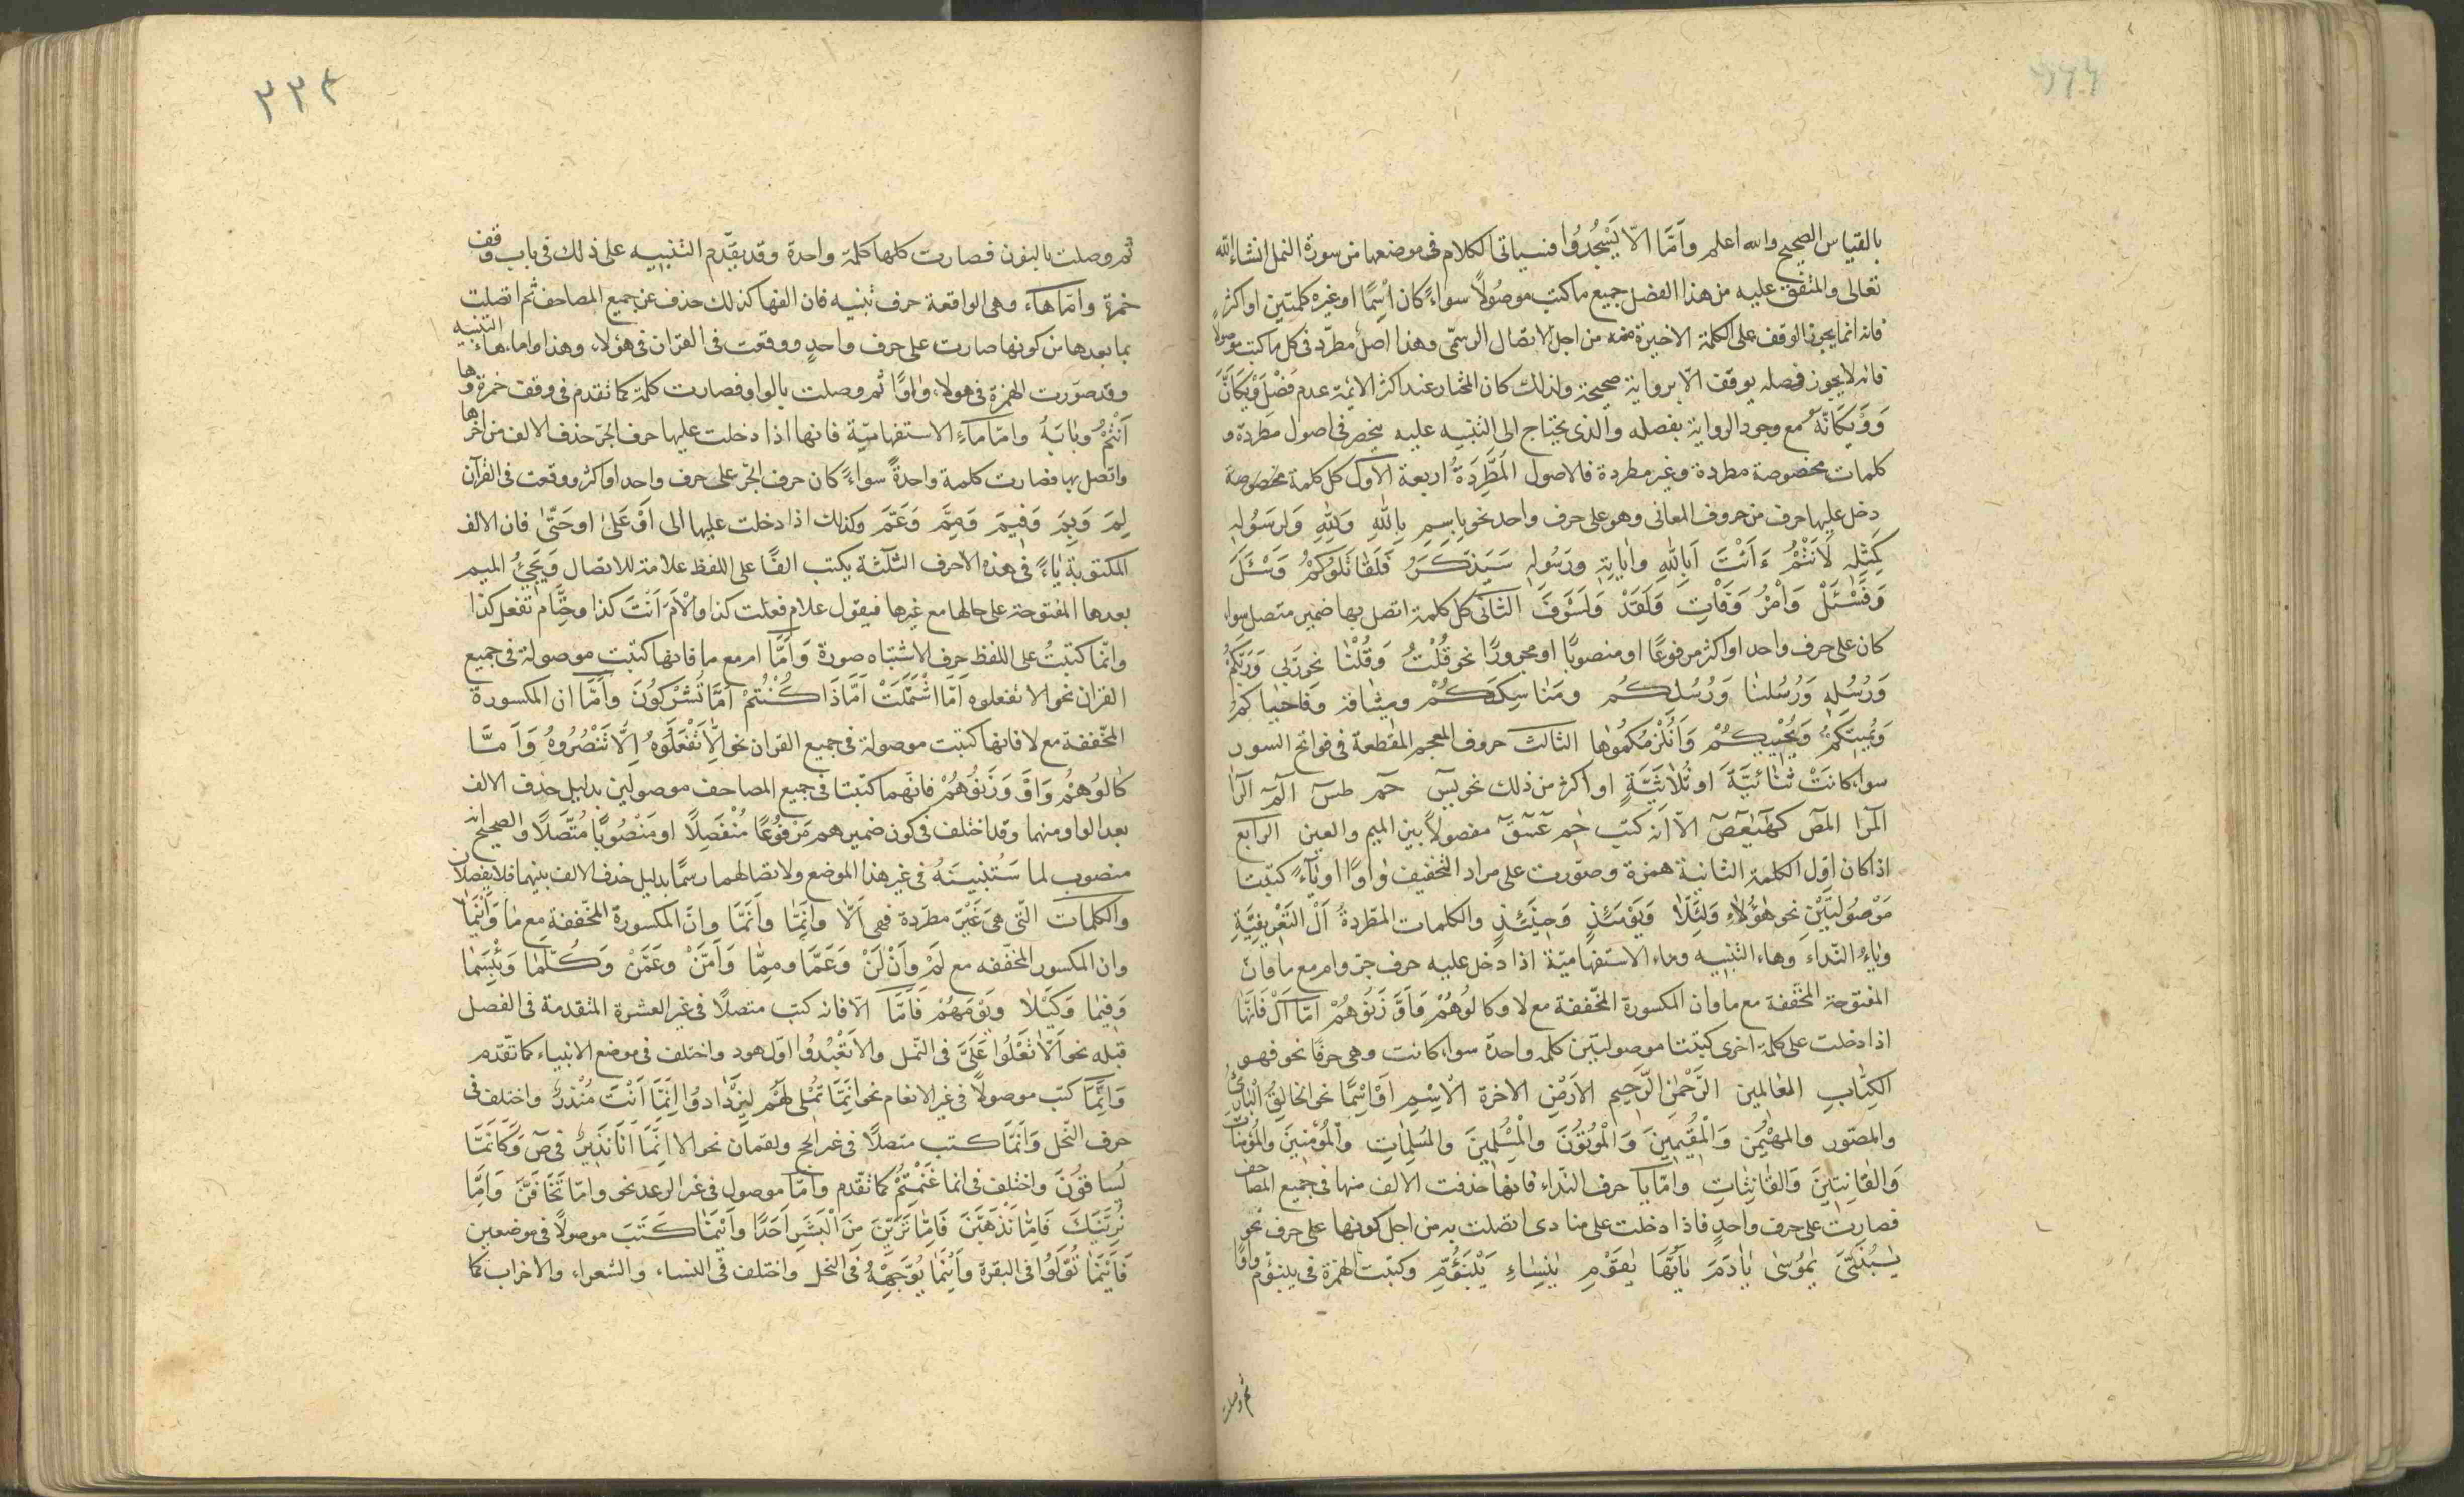 بالقياس الصحيح والله اعلم واَمَّا الاّ يَسْجُدُوا فسياتى الكلام فى موضعها من سورة النمل انشاء الله
تعالى والمتفق عليه من هذا الفصل جميع ما كتب موصُولاً سواءً كان اسِمًا او غيره كلمتين او اكثر
فانه انما يجوز الوقف على الكلمة الاخيرة منه من اجل الاتصال الرسمّى وهذا اصل مطرّد فى كل ما كتب موصولاً
فانه لا يجوز فصله بوقف الّا برواية صحيحة ولذلك كان المختار عند اكثر الائمة عدم فَصْل وَيْكَاَنَّ
وَوَيْكَاَنَّهُ مع وجود الرواية بفصله والذى يحتاج الى التنبيه عليه ينحصر فى اصول مطردة و
كلمات مخصوصة مطردة وغير مطردة فالاصول المُطَّرِدَةُ اربعة الاوّل كل كلمة
دخل عليها حرف من حروف المعانى وهو على حرف واحد نحو بِاسِمِ بِاللهِ وَلِلهِ وَلِرَسُولِهِ
كَمِثْلِهِ لَاَنْتُمْ ءَاَنْتَ اَبِاللهِ وَاٰيَاتِهِ وَرَسُولِهِ سَيَذَّكَّرُ فَلَقَاتَلُوكُمْ وَسْئَلْ
وَفَسْئَلْ وَاْمُرْ وَفَاْتِ وَلَقَدْ وَلَسَوْفَ الثانى كل كلمة اتصل بها ضمير متصل سواء
كان على حرف واحد او اكثر مرفوعًا او منصوبًا او مجرورًا نحو قُلْتُ وَقُلْنَا نحو رَبّى وَرَبّكُمْ
وَرُسُلِهِ وَرُسُلنَا وَرُسُلِكُم ومَنَاسِكَكُمْ وميثاقه وفاحياكم
وَيُمِيتكُمْ وَيُحْيِيكُمْ وَاَنُلْزِمُكُمُوهَا الثالث حروف المعجم المقطعة فى فواتح السور
سواء كانَتْ ثُنَائيَّةً او ثُلَاثَيَّةٍ او اكثر من ذلك نحو يسٓ حٓمٓ طسٓ الٓمٓ الٓرٰ
الٓمٓرٰ الٓمٓصٓ كٓهٰيٰعٓصٓ الاّ اَنه كتب حٓمٓ عٓسٓقٓ مفصولاً بين الميم والعين الرابع
اذا كان اوّل الكلمة الثانية همزة وصوّرت على مراد التخفيف وٰاوًا او يٰآءً كتبتا
مَوْصُولتَيْنِ نحو هٰؤُلَاءِ وَلِئَلّا وَيَوْمَئِذٍ وَحِيَنئِذٍ والكلمات المطّردةُ اَلْ التَعْرِيفيَّةِ
وياءُ النّداءِ وهاء التنبيه وماء الاستفهاميّة اذا دخل عليه حرف جرّ وام مع ما وان
المفتوحة المخففة مع ما وان المكسورة المخّففة مع لا وكالُوهُمْ وَاَوَّزَنُوهُمْ امّا اَلْ فَانَهَا
اذا دخلت على كلمة اخرى كتبتا موصولتَين كلمه واحدة سواء كانت وهى حرفًا نحو فهو
الكِتٰابِ العٰالمين الرَّحْمٰنِ الرّحيم الاَرْضِ الاخرة الْاِسْمِ اَوْ اِسْمًا نحو الخَالِقُ الْبَارِئُ
والمصوّر والمهَيْمِن وَالْمُقِيمينَ وَالْمُوتُونَ والْمُسْلِمينَ والمُسْلِمَاتِ والْمُؤمِنينَ والْمُؤمِنَاتِ
وَالقَانِتينَ وَالقَانِتَاتِ وامّا يا حرف النّداء فانها حذفت الالف منها فى جميع المصاحف
فصارت على حرف واحدٍ فاذا دخلت على منادى اتصلت به من اجل كونها على حرف نحو
يٰبُنَىَّ يٰمُوسٰى يٰاٰدَمَ يٰاَيّهَا يٰقَوْمِ يٰنِسَاءِ يٰبْنَؤُمِّ وكتبت الهمزة فى يبنؤم واوًا
ثم وصلت
٣٣٤
ثم وصلت بالنون فصارت كلها كلمة واحدة وقد تقدّم التنبيه على ذلك فى باب وقف
حمزة وامّا هاء وهى الواقعة حرف تنبيه فان الفها كذلك حذف عن جميع المصاحف ثم اتصلت
بما بعدها من كونها صارت على حرف واحدٍ ووقعت فى القران فى هؤلاء وهذا واما هاء التنبيه
وقد صوّرت الهمزة فى هولاء واوًا ثم وصلت بالواو فصارت كلمة كما تقدم فى وقف حمزة وها
اَنْتُمْ وبابَهُ وامّا ماءِ الاستفهاميّة فانها اذا دخلت عليها حرف الجرّ حذف الالف من اخرها
واتصل بها فصارت كلمة واحدةً سواءً كان حرف الجرّ على حرف واحد او اكثر ووقعت فى القرآن
لِمَ وَبِمَ وَفِيمَ وَمِمَّ وَعَمَّ وكذلك اذا دخلت عليها الى اَوْ عَلىٰ او حَتّىٰ فان الالف
المكتوبة يَاءً فى هذه الاحرف الثلٰثة يكتب الفًا على اللفظ علامة للاتصال وَيَجَىءُ الميم
بعدها المفتوحة على حالها مع غيرها فيقول علام فعلت كذا واِلاَمَ اَنْتَ كذا وحَتَّامَ تفعل كذا
وانّما كتبتُ على اللفظ حرف لاشتباه صورة وَاَمَّا ام مع ما فانها كتبت موصولة فى جميع
القران نحو الا تفعلوه اَمّا اشْتَمَلَتْ اَمَّاذَا كُنْتُمْ اَمَّا تُشْرِكُونَ واَمَّا ان المكسورة
المخّففة مع لا فانها كتبت موصولة فى جميع القران نحو اِلّاتَفْعَلُوهُ اِلَّا تَنْصُرُوهُ وَاَمَّا
كٰالوُهُمْ وَاَوَّزَنُوَهُمْ فانَهما كتبتا فى جميع المصاحف موصولين بدليل حذف الالف
بعد الواو منهما وقد اختلف فى كون ضمير هم مَرْفُوعًا مُنْفَصِلًا او مَنْصُوبًا مُتَّصَلًا والصحيح انه
منصوب لما سَنُبَيِنُهُ فى غير هذا الموضع ولاتصالهما رسمًا بدليل حذف الالف بينهما فلا يفصلان
والكلمات الّتى هىَ غَيْرَ مطرّدة فهى اَلّا واِنّمَا واَنمَّا وانّ المكسورة المخّففة مع مٰا وَاَيْنَمَا
وان المكسور المخففه مع لَمْ وَاَنْ لَنْ وَعَمَّا ومِمّا وَاَمَّنْ وعَمّنْ وَكُلَّمَا وَبِئْسَمَا
وَفيمَا وَكَيْلَا وَيَوْمَهُمْ فَاَمّا اَلّا فانه كتب متصلًا فى غير العشرة المتقدمة فى الفصل
قبله نحو اَلّا تَعْلُوا عَلَىَّ فى النّمل والا تَعْبُدُوا اوّل هود واختلف فى موضع الانبياء كما تقدم
وَاِنَّمَا كتب موصولاً فى غير الانعام نحو اِنَمّا نُمْلى لَهُمْ لِيَزْدَادوُا اِنَّمَا اَنْتَ مُنْذِرُ واختلف فى
حرف النّحل وَاَنَمّا كتب متصلًا فى غير الحج ولقمان نحو الا اِنَّمَا اَنَا نَذِيرٌ فى صٓ وَكَاَنَّمَا
يُساقُونَ واختلف فى انما غَنِمْتُمْ كما تقدم واَمّا موصول فى غير الرعد نحو وامّا تَخَافَنَّ وَاِمَّا
نُرِيَنَّكَ فَاِمّا نَذْهَبَنّ فَاِمّا تَرَيِنَّ مِنَ اَلْبَشَرِ اَحَدًا واَيْنَمَا كَتَبَ موصولًا فى موضعين
فَاَيْنَمَا تُوَلّوُا فى البقرة واَيْنَمَا يُوَجِّهْهُ فى النحل واختلف فى النساء والشعراء والاحزاب كما